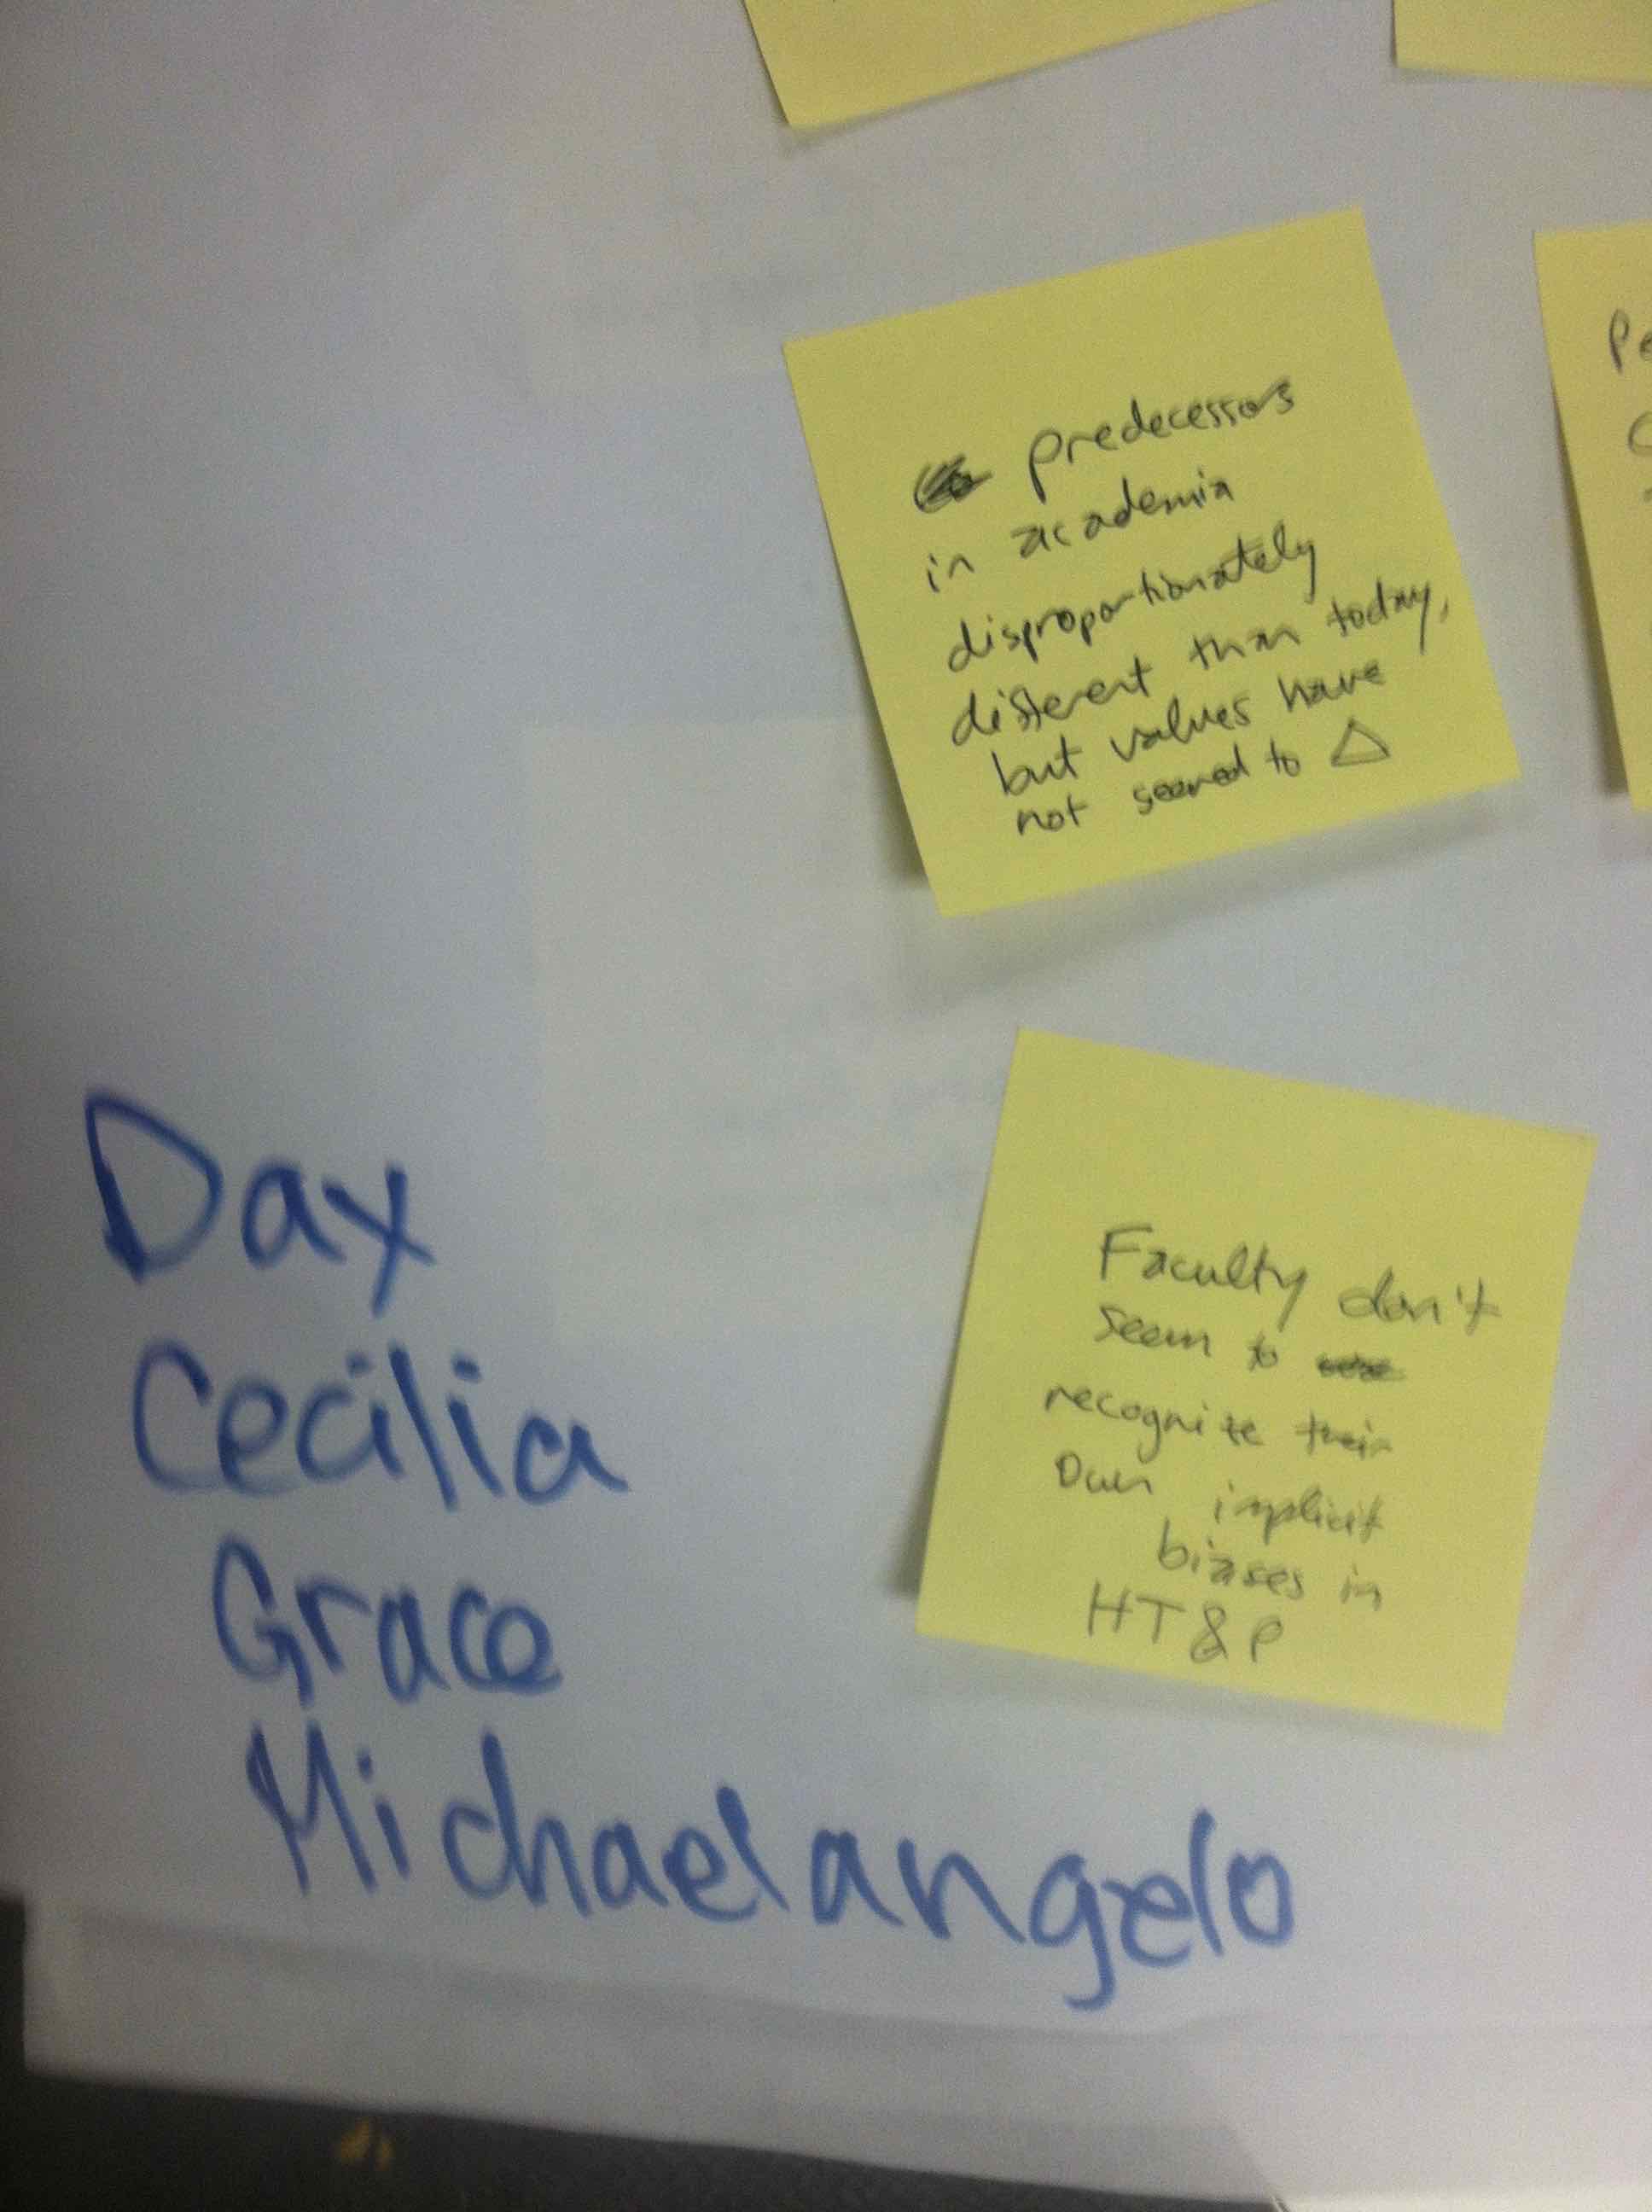 predecessors
in academia
disproportionately
different than today,
but values have
not seemed to Δ
Pe
Faculty don't
seem to
recognize their
own implicit
biases in
HT & P
Dax
Cecilia
Grace
Michaelangelo